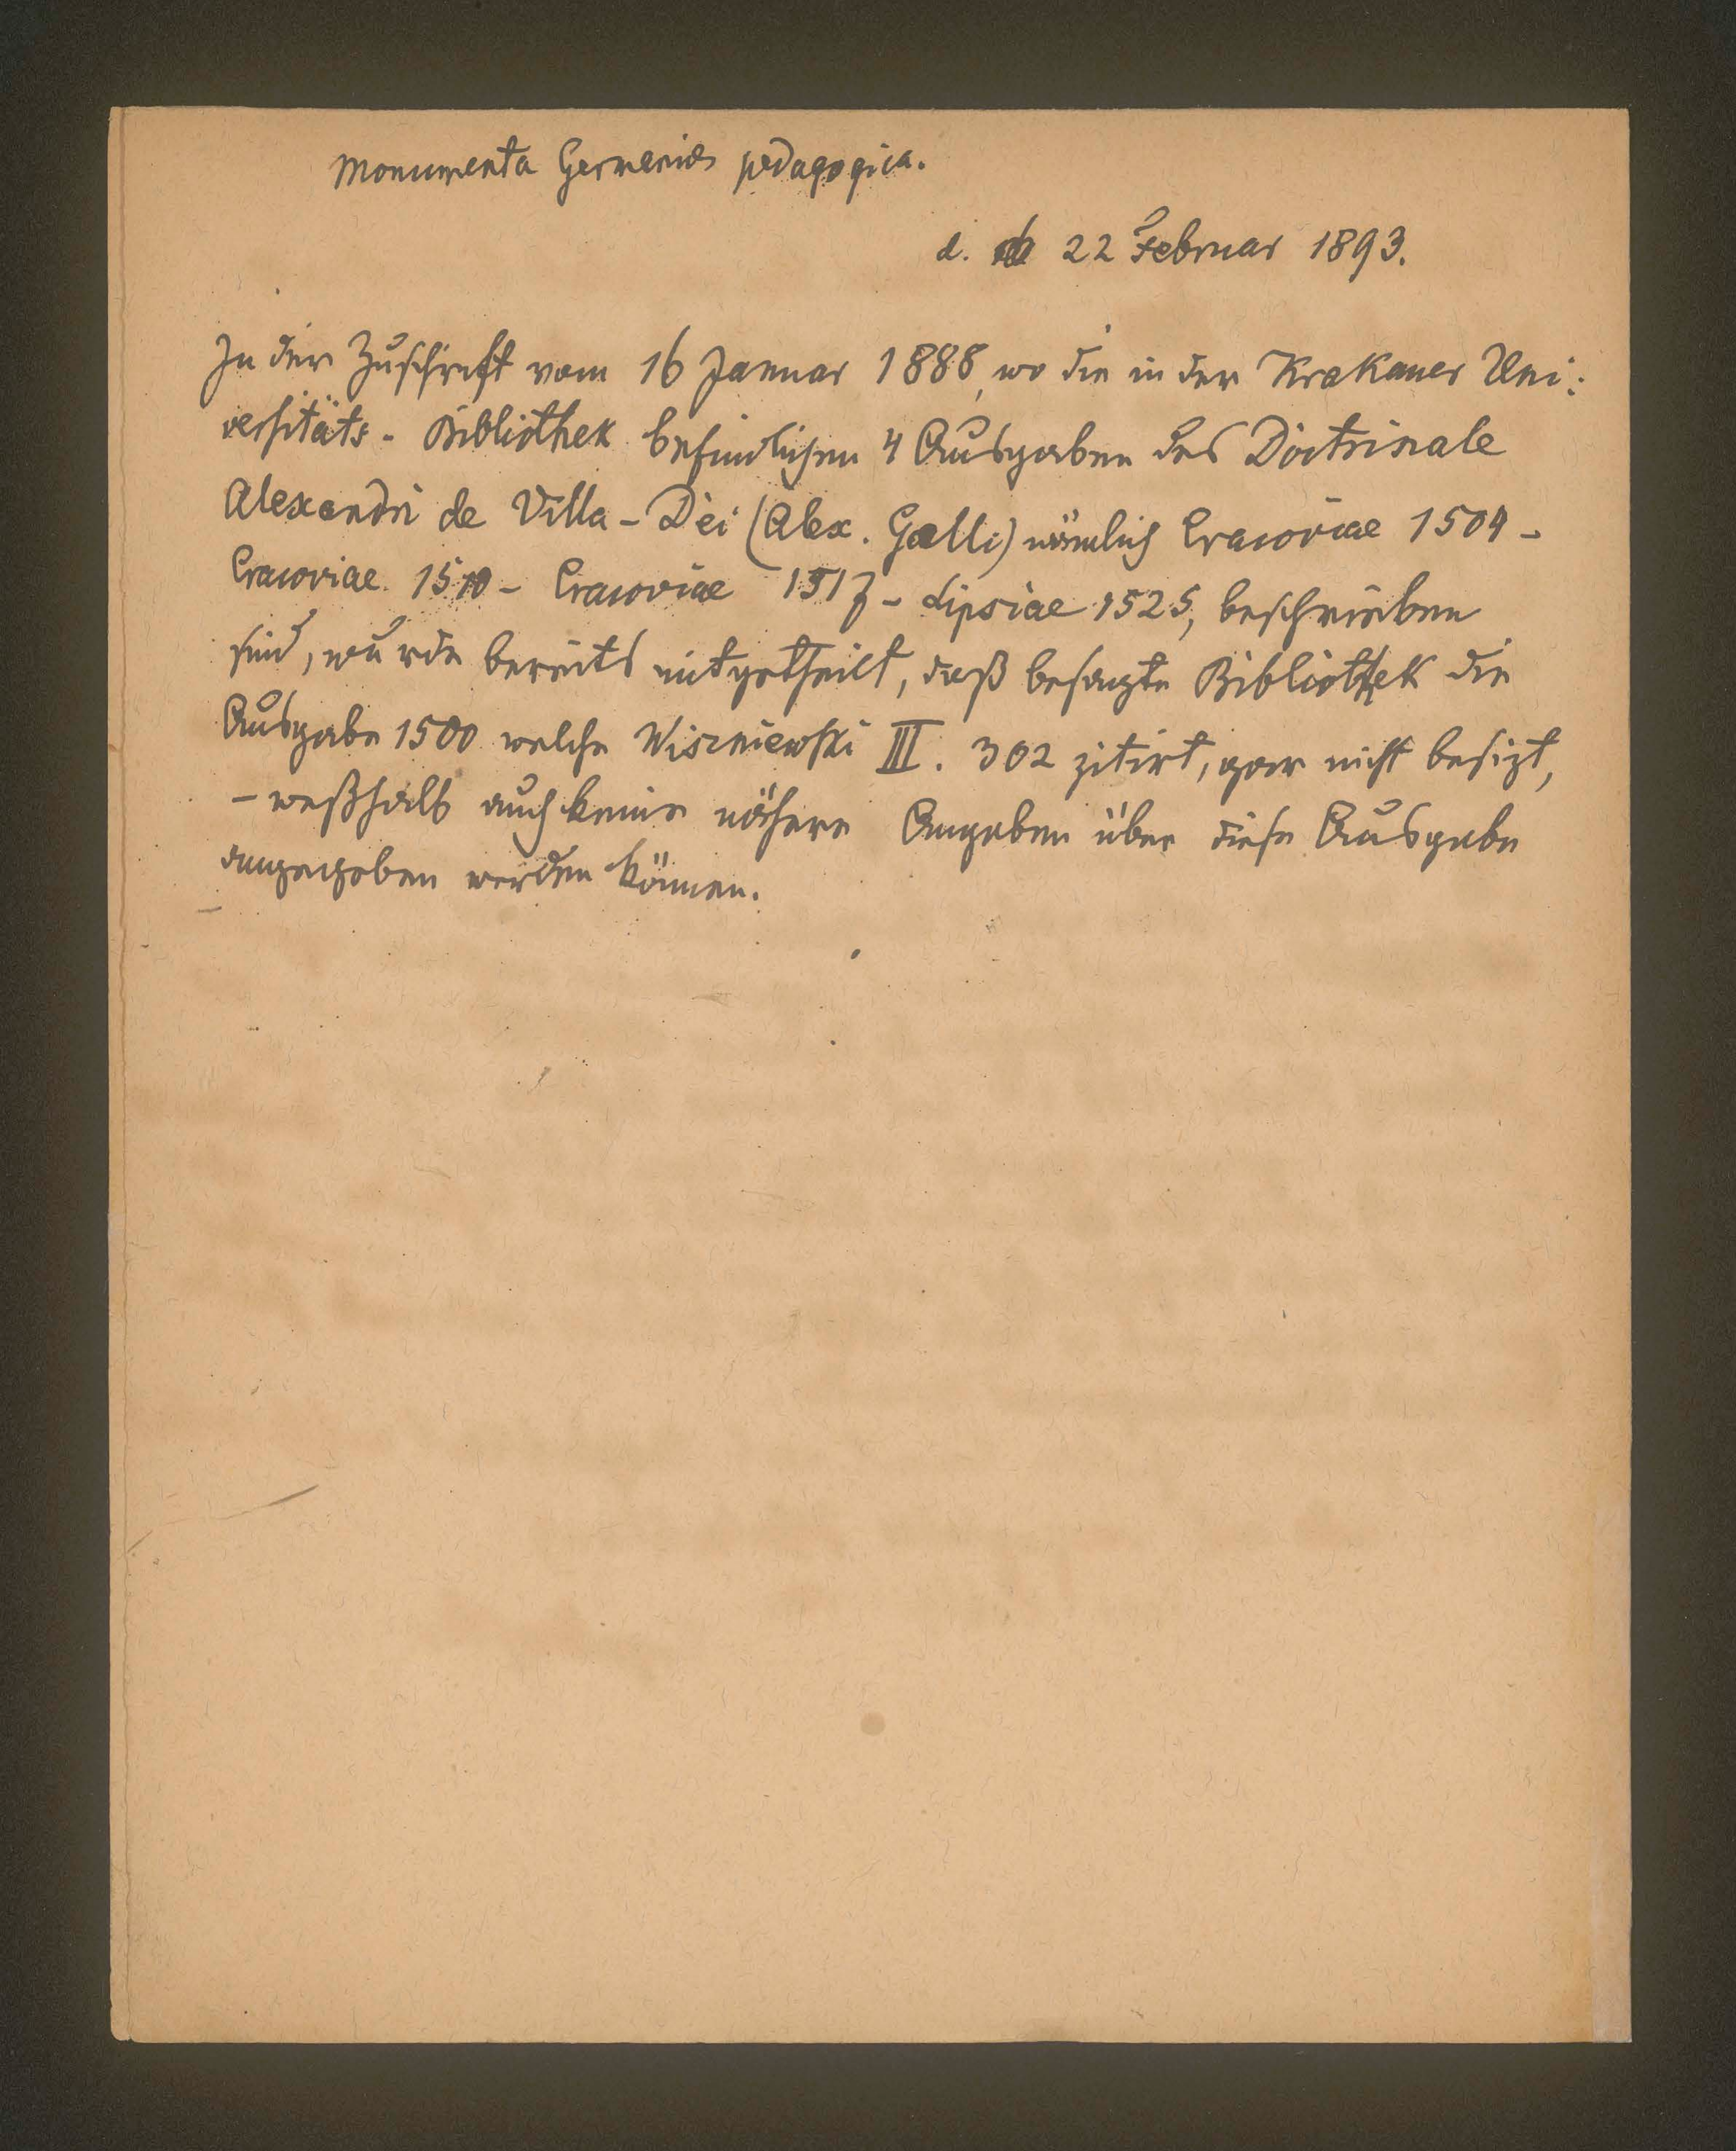 Monumenta Germaniae pedagogica.
d. 22 Februar 1893.
In der Zuschrift vom 16 Januar 1888, wo die in der Krakauer Uni:
versitäts-Bibliothek befindlichen 4 Ausgaben des Doctrinale
Alexandri de Villa-Dei (Alex. Galli) nämlich Cracoviae 1504 -
Cracoviae 1510 - Cracoviae 1517 - Lipsiae 1525, beschrieben
sind, wurde bereits mitgetheilt, daß besagte Bibliothek die
Ausgabe 1500 welche Wiszniewski III. 302 zitirt, gar nicht besizt,
- weßhalb auch keine nähere Angaben über diese Ausgabe
angegeben werden können.